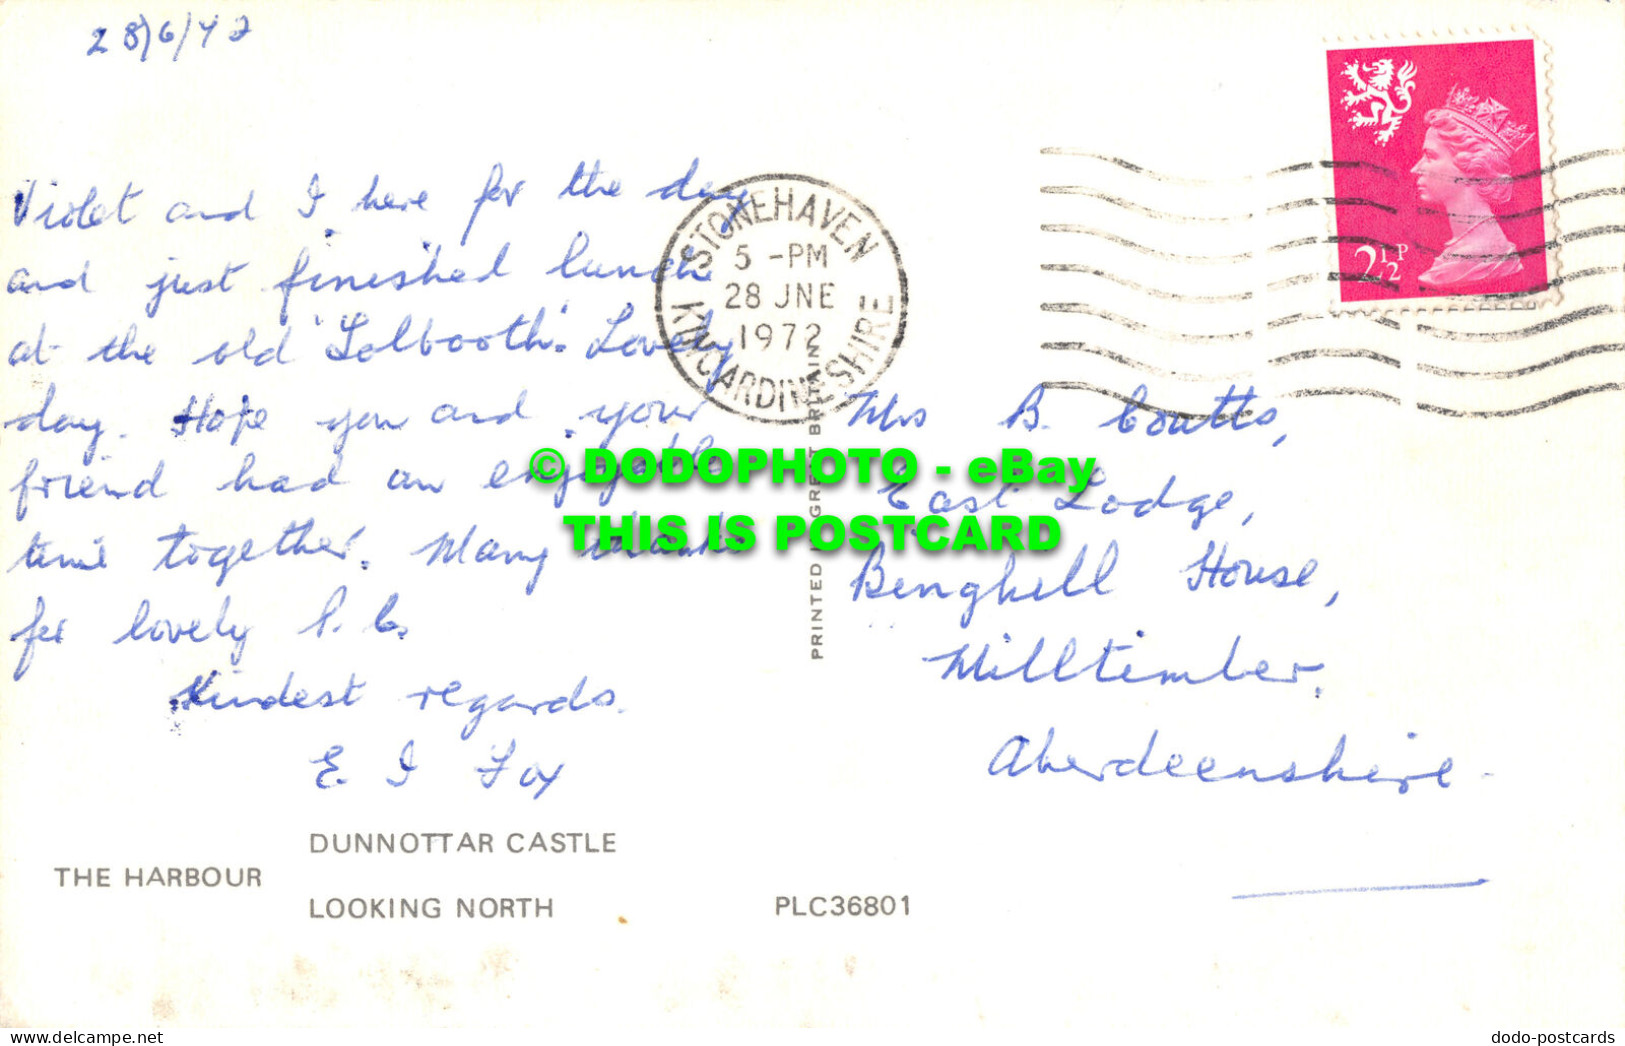 28/6/72
Violet and I here for the day
and just finished lunch
at the old 'Tolbooth'. Lovely
day. Hope you and your
friend had an enjoyable
time together. Many thanks
for lovely P.C.
Kindest regards.
E I Foy
THE HARBOUR
DUNNOTTAR CASTLE
LOOKING NORTH
PLC36801
PRINTED IN GREAT BRITAIN
STONEHAVEN
5 -PM
28 JNE
1972
KINCARDINESHIRE
2½P
Mrs B. Coutts,
East Lodge,
Bieghill House,
Milltimber,
Aberdeenshire.
© DODOPHOTO - eBay
THIS IS POSTCARD
delcampe.net
dodo-postcards